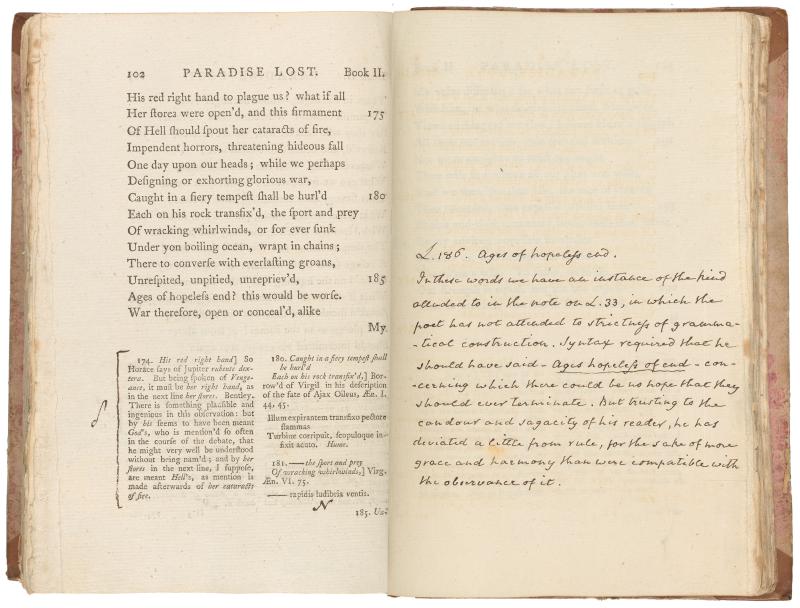 102 PARADISE LOST. Book II.
His red right hand to plague us? what if all
Her ſtores were open'd, and this firmament 175
Of Hell ſhould ſpout her cataracts of fire,
Impendent horrors, threatening hideous fall
One day upon our heads; while we perhaps
Deſigning or exhorting glorious war,
Caught in a fiery tempeſt ſhall be hurl'd 180
Each on his rock tranſfix'd, the ſport and prey
Of wracking whirlwinds, or for ever ſunk
Under yon boiling ocean, wrapt in chains;
There to converſe with everlaſting groans,
Unreſpited, unpitied, unrepriev'd, 185
Ages of hopeleſs end? this would be worſe.
War therefore, open or conceal'd, alike
My
174. His red right hand] So
Horace ſays of Jupiter rubente dex-
tera. But being ſpoken of Venge-
ance, it muſt be her right hand, as
in the next line her ſtores. Bentley.
There is ſomething plauſible and
ingenious in this obſervation: but
by his ſeems to have been meant
God's, who is mention'd ſo often
in the courſe of the debate, that
he might very well be underſtood
without being nam'd; and by her
ſtores in the next line, I ſuppoſe,
are meant Hell's, as mention is
made afterwards of her cataracts
of fire.
180. Caught in a fiery tempeſt ſhall
be hurl'd
Each on his rock tranſfix'd,] Bor-
row'd of Virgil in his deſcription
of the fate of Ajax Oileus, Æn. I.
44, 45.
Illum exſpirantem transfixo pectore
flammas
Turbine corripuit, ſcopuloque in-
fixit acuto. Hume.
181. —— the ſport and prey
Of wracking whirlwinds,] Virg.
Æn. VI. 75.
—— rapidis ludibria ventis.
N
185. Un-
L. 186. Ages of hopeleſs end.
In these words we have an instance of the kind
attended to in the note on L. 33, in which the
poet has not attended to strictneſs of gramma-
-tical construction. Syntax required that he
should have said - Ages hopeleſs of end - con-
-cerning which there could be no hope that they
should ever terminate. But trusting to the
candour and sagacity of his reader, he has
deviated a little from rule, for the sake of more
grace and harmony than were compatible with
the observance of it.